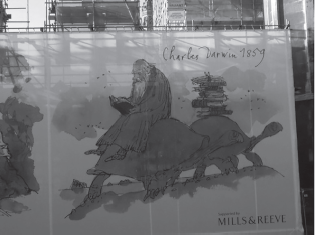 Charles Darwin 1859
MILLS & REEVE